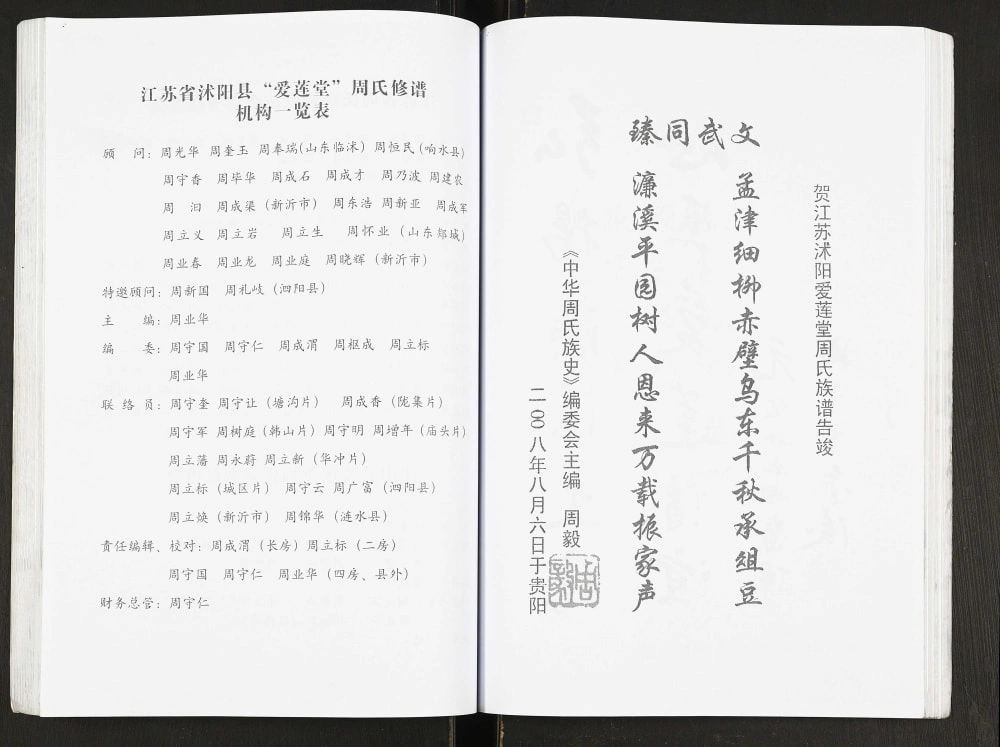 江苏省沭阳县“爱莲堂”周氏修谱
机构一览表
顾　问：周光华 周奎玉 周奉瑞（山东临沭） 周恒民（响水县）
周守香 周毕华 周成石 周成才 周乃波 周建农
周　汩 周成渠（新沂市） 周东浩 周新亚 周成军
周立义 周立岩 周立生 周怀业（山东郯城）
周业春 周业龙 周业庭 周晓辉（新沂市）
特邀顾问：周新国 周礼岐（泗阳县）
主　编：周业华
编　委：周守国 周守仁 周成渭 周枢成 周立标
周业华
联 络 员：周守奎 周守让（塘沟片） 周成香（陇集片）
周守军 周树庭（韩山片）周守明 周增年（庙头片）
周立藩 周永蔚 周立新（华冲片）
周立标（城区片） 周守云 周广富（泗阳县）
周立焕（新沂市） 周锦华（涟水县）
责任编辑、校对：周成渭（长房）周立标（二房）
周守国 周守仁 周业华（四房、县外）
财务总管：周守仁
贺江苏沭阳爱莲堂周氏族谱告竣
文武同臻
孟津细柳赤壁乌东千秋承俎豆
濂溪平园树人恩来万载振家声
《中华周氏族史》编委会主编　周毅
二00八年八月六日于贵阳